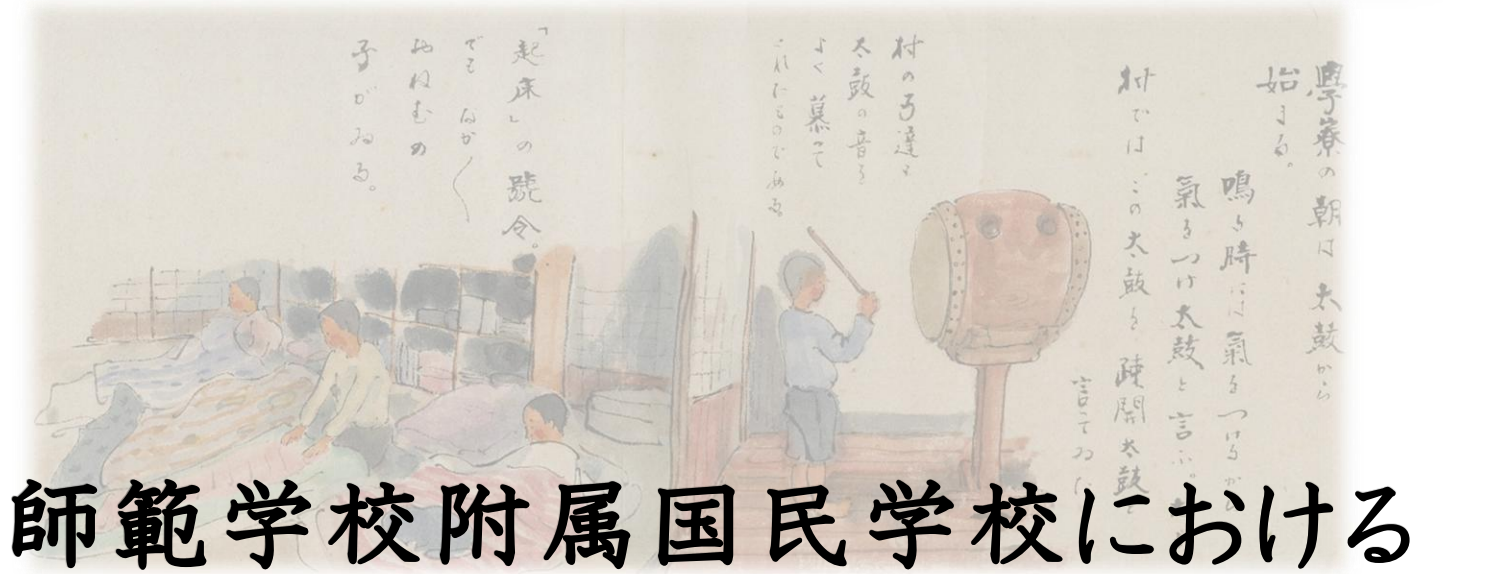 學寮の朝は太鼓から
始まる。
鳴る時には氣をつける
氣をつけ太鼓と言ふ。
村ではこの太鼓を疎開太鼓と
言つてゐた
村の子達も
太鼓の音を
よく慕つて
くれたものである
「起床」の號令。
でもなか〱
おねむの
子がゐる。
師範学校附属国民学校における